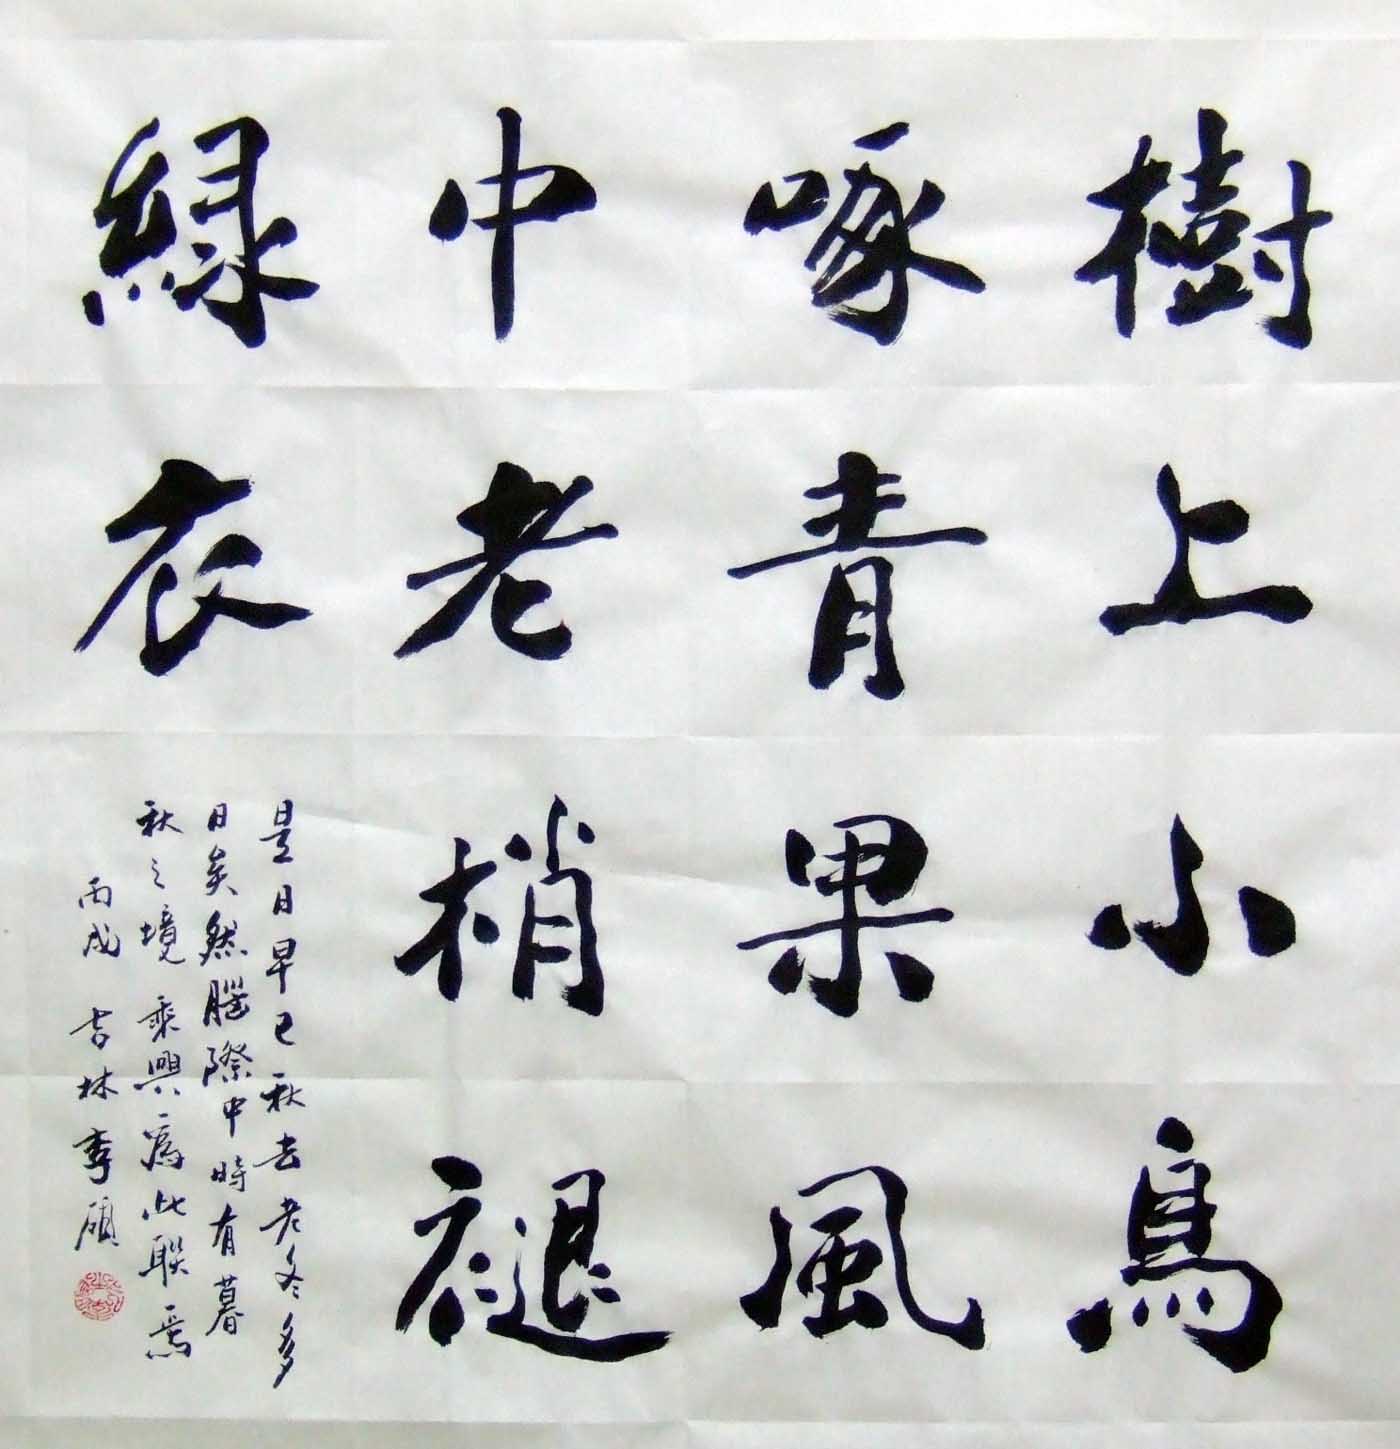 樹上小鳥
啄青果風
中老梢褪
緑衣
是日早已秋去老冬多
日矣然腦際中時有暮
秋之境乘興爲此聯焉
丙戌 吉林李碩